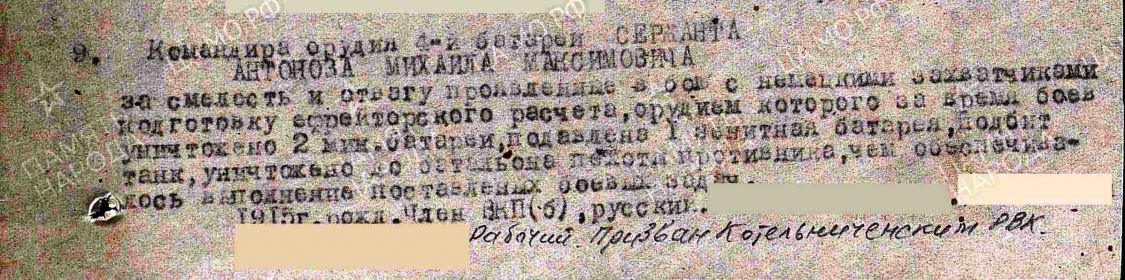 9. Командира орудия 4-й батареи СЕРЖАНТА
АНТОНОВА МИХАИЛА МАКСИМОВИЧА
за смелость и отвагу проявленные в бою с немецкими захватчиками
подготовку ефрейторского расчета, орудием которого за время боев
уничтожено 2 мин. батареи, подавлена 1 зенитная батарея, подбит
танк, уничтожено до батальона пехоты противника, чем обеспечива-
лось выполнение поставленых боевых задач.
1915г. рожд. Член ВКП(б), русский.
Рабочий. Призван Котельниченским РВК.